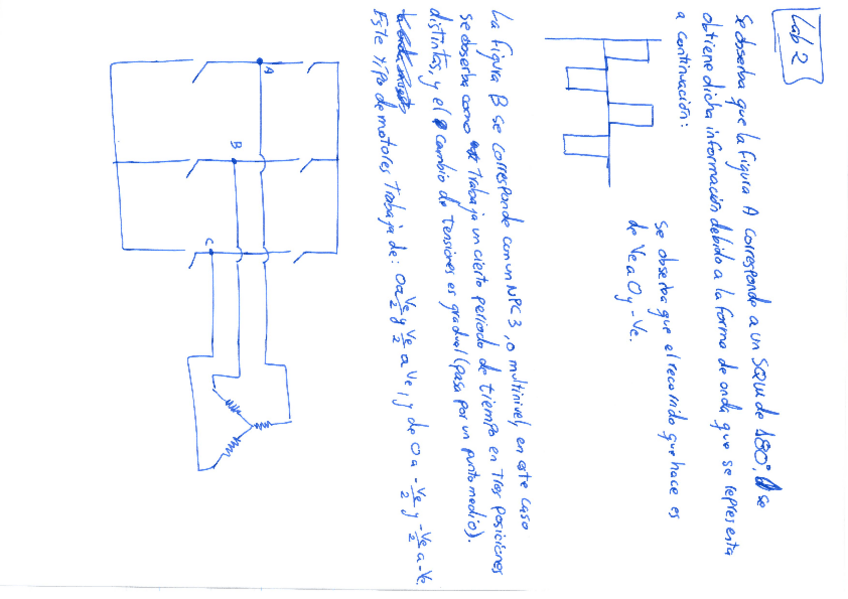 Lab 2
Se observa que la figura A corresponde a un SQW de 180º, se
obtiene dicha información debido a la forma de onda que se representa
a continuación:
Se observa que el recorrido que hace es
de Ve a 0 y -Ve.
La figura B se corresponde con un NPC3, o multinivel, en este caso
se observa como trabaja un cierto periodo de tiempo en tres posiciones
distintas, y el cambio de tensiones es gradual (pasa por un punto medio).
Este tipo de motores trabaja de: 0 a Ve/2 y Ve/2 a Ve, y de 0 a -Ve/2 y -Ve/2 a -Ve.
A
B
C